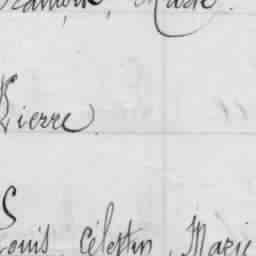 Marie.
Pierre
Louis, Célestin, Marie